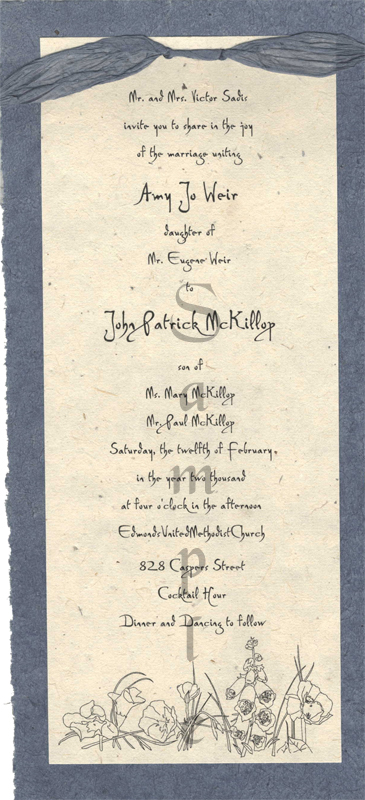 Mr. and Mrs. Victor Sadis
invite you to share in the joy
of the marriage uniting
Amy Jo Weir
daughter of
Mr. Eugene Weir
to
John Patrick McKillop
son of
Ms. Mary McKillop
Mr. Paul McKillop
Saturday, the twelfth of February,
in the year two thousand
at four o'clock in the afternoon
EdmondsUnitedMethodistChurch
828 Caspers Street
Cocktail Hour
Dinner and Dancing to follow
Sample